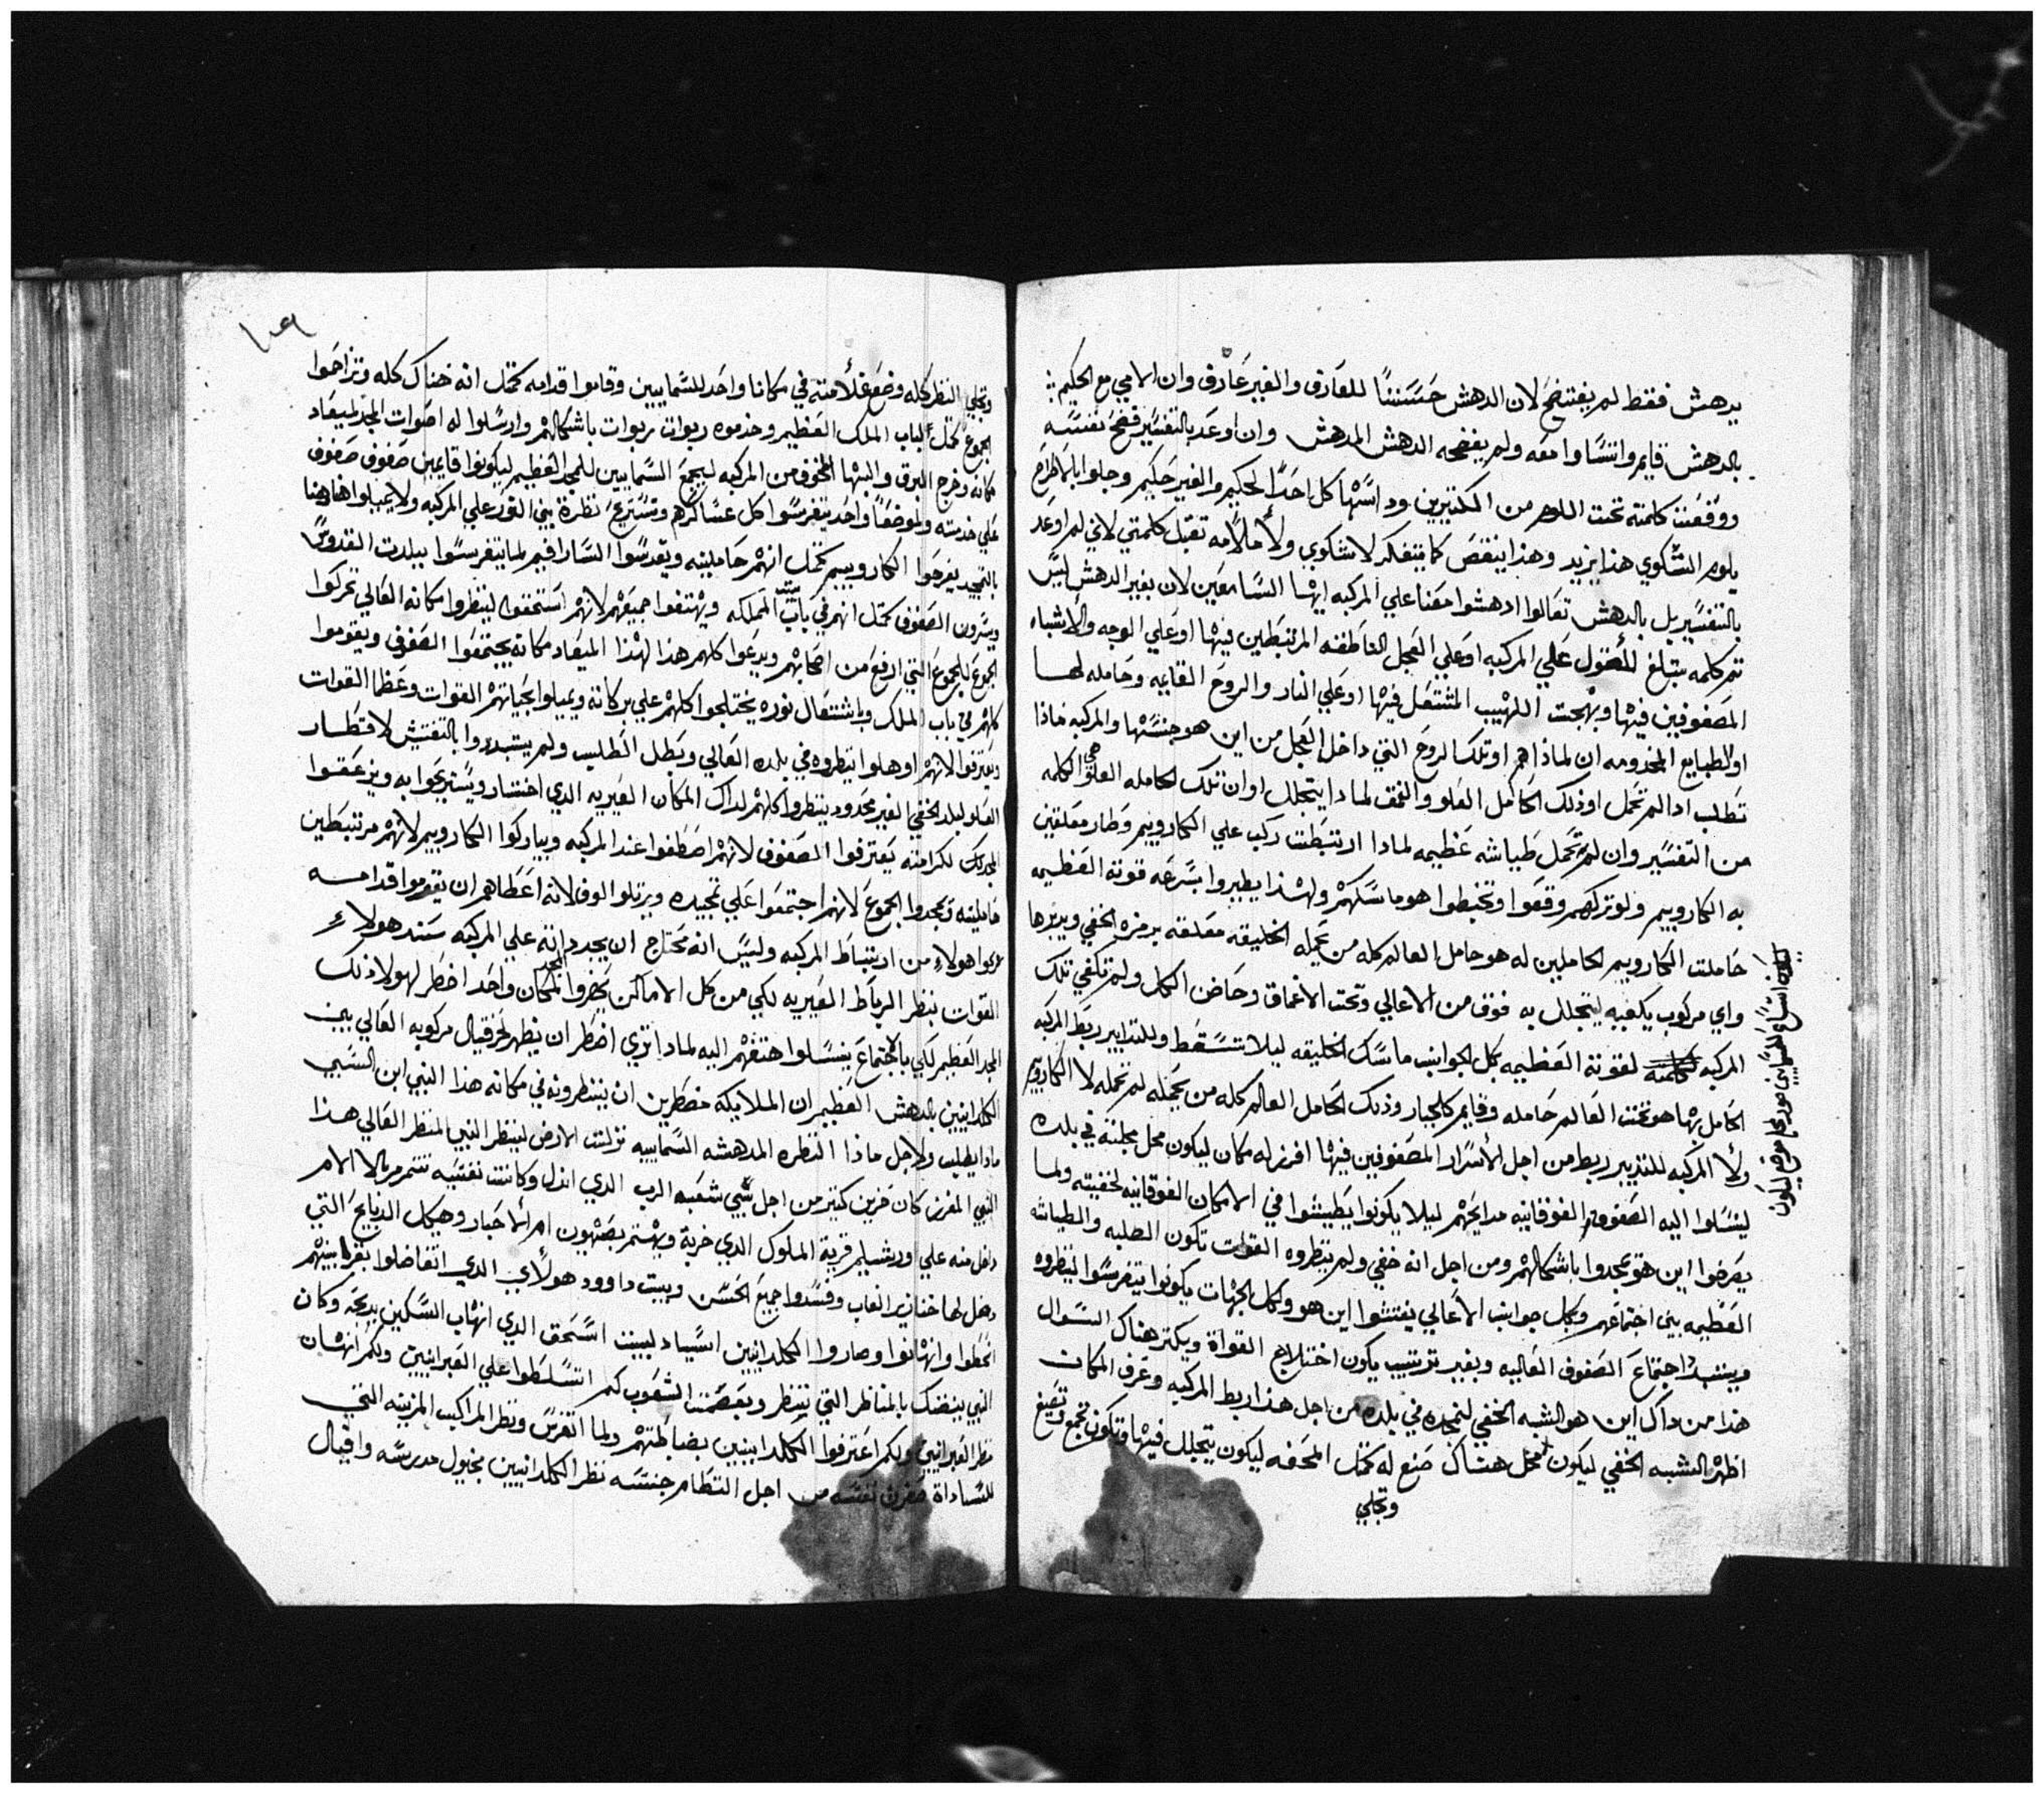 يدهش فقط لم يفتضح لان الدهش حسننًا للعارف والغير عارف وان الامي مع الحكيم
بالدهش قايم واتساوا معه ولم يفضحه الدهش المدهش وان اوعد بالتفسير فضح نفسه
ووقفت كلمته تحت اللوم من الكتيرين وداسها كل احدًا الحكيم والغير حكيم وجلوا
يلوم الشكوي هذا يزيد وهذا ينقص كما يتفكر لا شكوي ولا ملامه تقبل كلمتي لاني لم اوعد
بالتفسير بل بالدهش تعالوا ادهشوا معنا علي المركبه ايها السامعين لان بغير الدهش ليس
تم كلمه تبتلغ للقول علي المركبه او علي العجل العاطفه المرتبطين فيها او علي الوجه والاشباه
المصفوفين فيها وبهجت اللهيب المشتعل فيها او علي النار والروح القايه وحامله لها
او الطبايع المخدومه ان لماذا هم او تلك الروح التي داخل العجل من اين هو جنسها والمركبه ماذا
تطلب اذا لم تحمل او ذلك الحامل العلو والعمق لماذا يتجلل او ان تلك لحامله العلو هي الكلمه
من التفسير وان لم تحمل طياشه عظيمه لماذا ارتبطت ركب علي الكاروبيم وطار معلقين
به الكاروبيم ولو تركهم وقفوا وتخبطوا هو ماسكهم ولهذا يطيروا بسرعه قوته العظيمه
حاملت الكاروبيم الحاملين له هو حامل العالم كله من يحمله الخليقه معلقه برمزه الخفي ويدبرها
واي مركوب يكفيه ليتجلل به فوق من الاعالي وتحت الاعماق وحاضن الكل ولم تكفي تلك
المركبه لقوته العظيمه بكل الجوانب ماسك الخليقه ليلا تسقط وبالتدابير ربط المركبه
الحامل بها هو تحت العالم حامله وقايم كالجبار وذلك الحامل العالم كله من يحمله لم تحمله لا الكاروبيم
ولا المركبه للتدبير ربط من اجل الاسرار المصفوفين فيها افرز له مكان ليكون محل مجلته في بلده
ليتسلوا اليه الصفوف الفوقانيه مدايحهم ليلا يكونوا يطيشوا في الامكان الفوقانيه لخفيته ولما
يعرضوا اين هو تمجدوا باشكالهم ومن اجل انه خفي ولم ينظروه القوات تكون الطلبه والطياشه
العظيمه بين اجتماعهم وبكل جوانب الاعالي يفتشوا اين هو وبكل الجهات يكونوا يتفرسوا لينظروه
ويتبدد اجتماع الصفوف العاليه وبغير ترتيب يكون اختلاج القواة ويكتر هناك السوال
هذا من داك اين هو الشبه الخفي لنمجده في بلده من اجل هذا ربط المركبه وعرف المكان
اظهر الشبه الخفي ليكون محل هناك صنع له كمتل المحفه ليكون يتجلل فيها وتكون تجمع وتصنع
وتجلي
وتجلي النظر كله وضع علامته في مكانا واحد للسماييين وقاموا قدامه كمتل انه هناك كله وتزاحموا
الجموع كمتل لباب الملك العظيم وخدموه ربوات ربوات باشكالهم وارسلوا له اصوات المجد لميعاد
مكانه وخرج البرق والبها المخوف من المركبه ليجمع السماييين للمجد العظيم ليكونوا قايمين صفوف صفوف
علي خدمته ولموضعًا واحد يتفرسوا كل عساكرهم وتستريح نظرة بني النور علي المركبه ولا يميلوا هاهنا
بالتمجيد يفرحوا الكاروبيم كمتل انهم حاملينه ويقدسوا السارافيم لما يتفرسوا ببلدت القدوس
ويسرون الصفوف كمتل انهم في باب بيت المملكه ويهتفوا جميعهم لانهم استحقوا لينظروا مكانه العالي تحركوا
الجموع للجموع التي ارفع من اصحابهم ويدعوا كلهم هذا لهذا الميعاد مكانه يجتمعوا الصفوف ويقوموا
كلهم في باب الملك وباشتعال نوره يختلجوا كلهم علي بركاته ويميلوا لجباتهم القوات وعظما القوات
ويعترفوا لانهم اوهلوا ينظروه في بلده العالي ويبطل الطليب ولم يتبددوا بالتفتيش لاقطار
العلو لبلد الخفي الغير محدود ينظروا كلهم لداك المكان الغيريه الدي اختار ويستريحوا به ويزعقوا
المجد لكرامته يعترفوا الصفوف لانهم اصطفوا عند المركبه ويباركوا الكاروبيم لانهم مرتبطين
حاملينه ويمجدوا الجموع لانهم اجتمعوا علي تمجيده ويرتلوا الوف لانه اعطاهم ان يقوموا قدامه
هولاء من ارتباط المركبه وليس انه محتاج ان يجدد اته علي المركبه سند هولاء
القوات بنظر الرباط الغيريه لكي من كل الاماكن يحضروا المجد لمكان واحد اخطر لهولا ذلك
المجد العظيم لكي بالاجتماع يتسلوا هتفهم اليه لماذا تري اضطر ان يظهر لحزقيال مركوبه العالي بين
الكلدانيين بالدهش العظيم ان الملايكه مضطرين ان ينظرونه في مكانه هذا النبي ابن السبي
ماذا يطلب ولاجل ماذا النظره المدهشه السماييه نزلت الارض لينظر النبي المنظر العالي هذا
النبي المفرز كان حزين كتير من اجل سبي شعب الرب الدي اندل وكانت نفسه تتمرمر بالالام
داخل منه علي اورشليم قرية الملوك الدي خربة وبهتم بصهيون ام الاحبار وهيكل الدبايح التي
دخل لها خنازير الغاب وفسدوا جميع الحسن وبيت داوود هولاي الدي اتفاضلوا بقرابينهم
انحطوا وانهانوا وصاروا الكلدانيين اسياد لبيت اسحق الدي انهاب السكين بدبحه وكان
النبي يتضنك بالمناظر التي تنظر وبعضت الشعوب كم اتسلطوا علي العبرانيين وبكم انهان
نظر العبرانيين وبكم اعترفوا الكلدانيين بضبابطتهم ولما اتفرس ونظر المراكيب المزينه التي
للساداة حزن نفسه من اجل التطام جنسه نظر الكلدانيين بخيول مدرسه واقبال